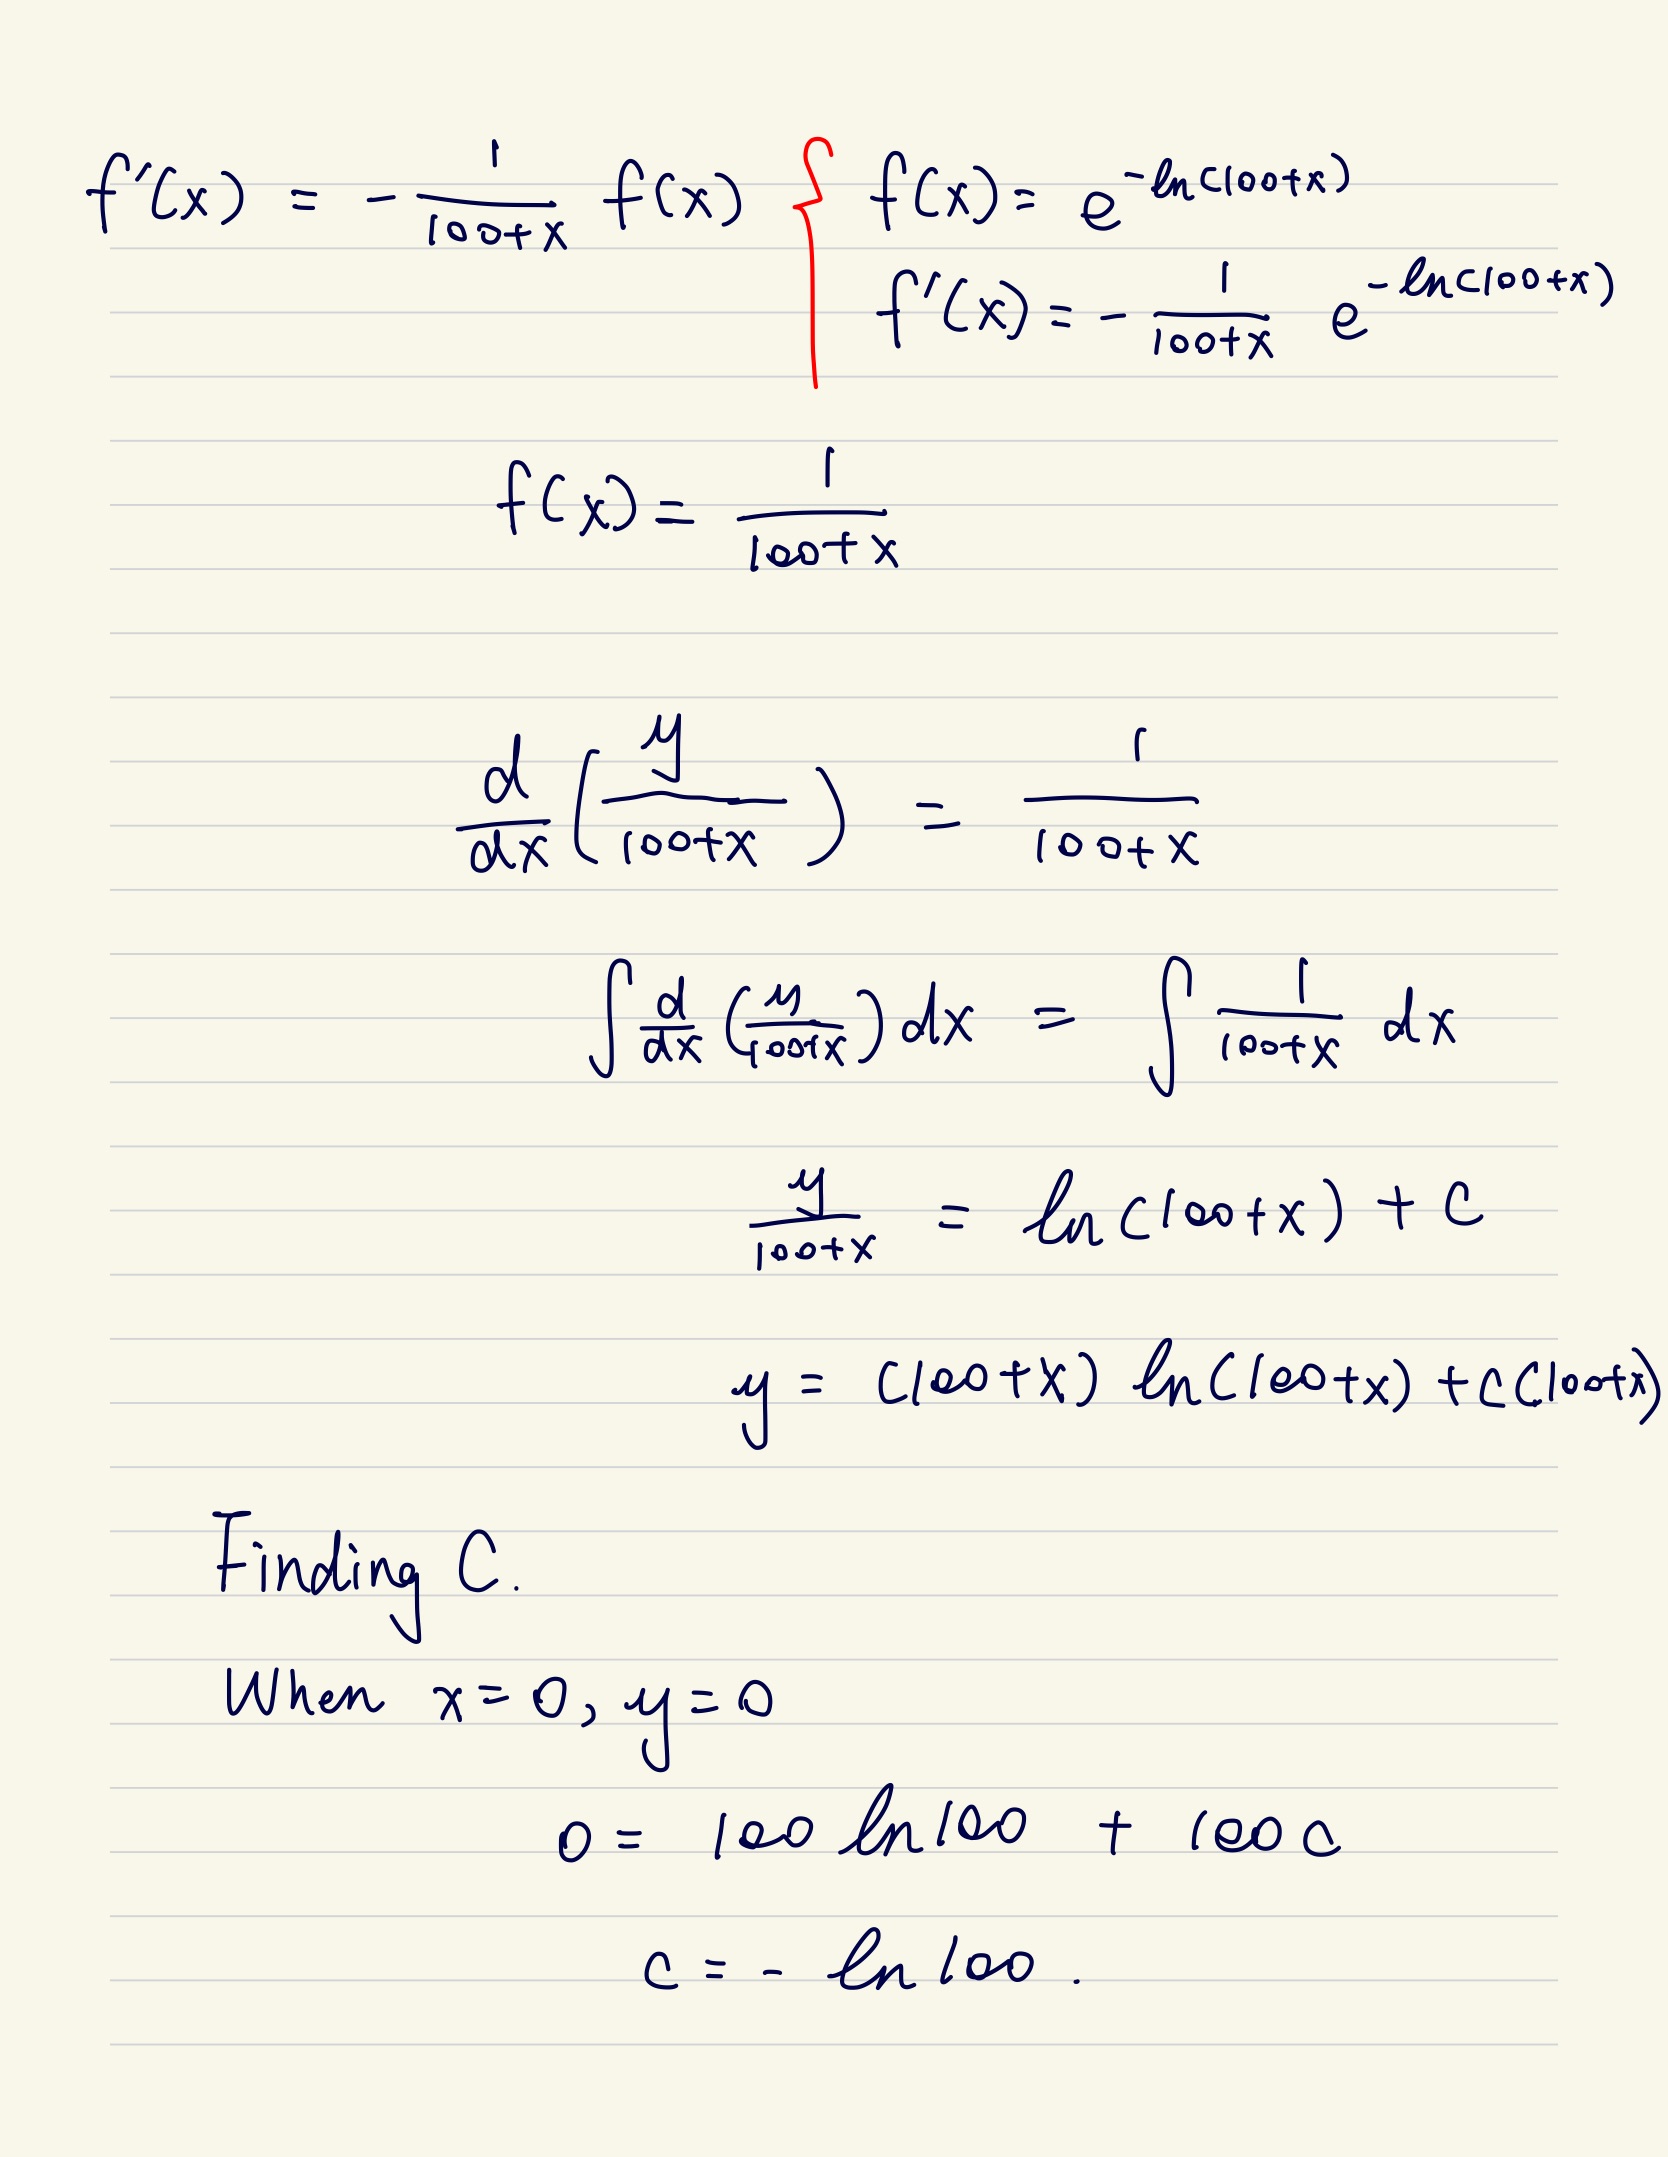 f'(x) = - 1/(100+x) f(x) { f(x) = e^(-ln(100+x))
f'(x) = - 1/(100+x) e^(-ln(100+x))
f(x) = 1/(100+x)
d/dx (y/(100+x)) = 1/(100+x)
∫ d/dx (y/(100+x)) dx = ∫ 1/(100+x) dx
y/(100+x) = ln(100+x) + C
y = (100+x) ln(100+x) + C(100+x)
Finding C.
When x=0, y=0
0 = 100 ln 100 + 100 C
C = - ln 100.